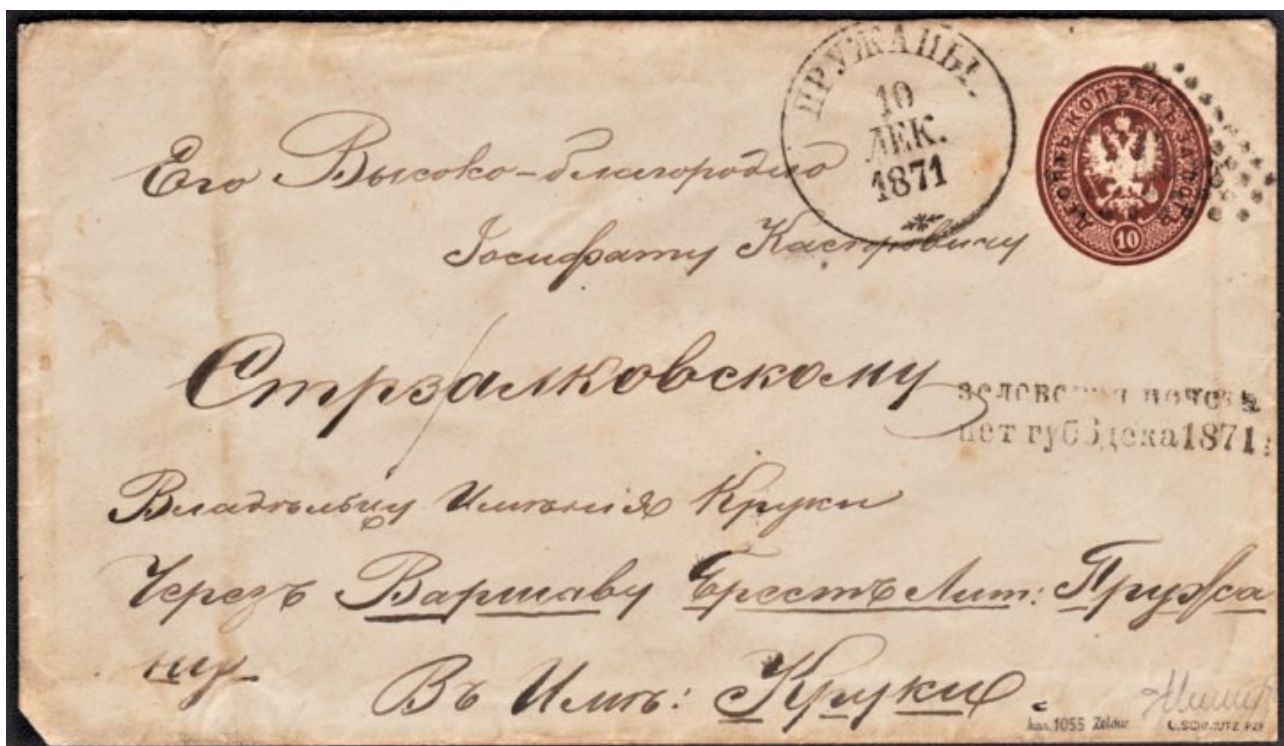 ПРУЖАНЫ.
10
ДЕК.
1871
ДЕСЯТЬ КОПѢЕКЪ ЗА ЛОТЪ
10
Его Высоко-благородію
Іосифату Каспровичу
Стрзалковскому
1871
Владѣльцу Имѣнія Круки
Черезъ Варшаву Брестъ Лит: Пружа
ну
Въ Имѣ: Круки.
kas. 1055 Zelów
L. SCHMUTZ, PZF